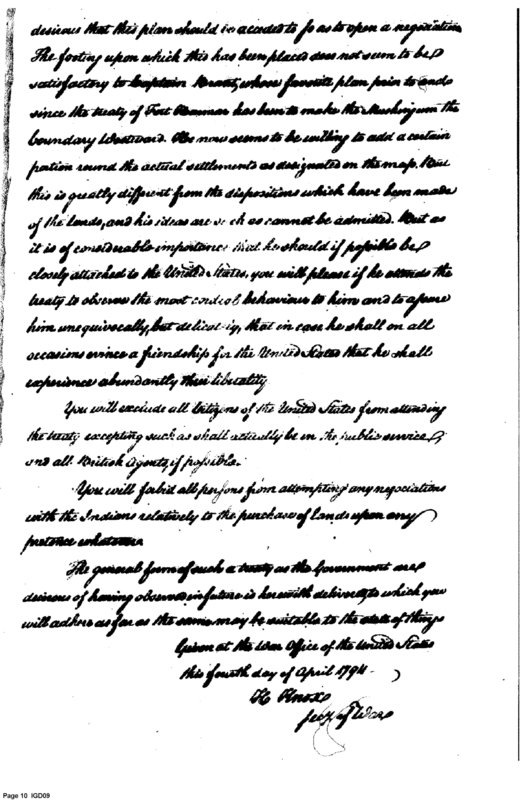 desirous that this plan should be acceded to so as to open a negociation
The footing upon which this has been placed does not seem to be
satisfactory to Captain Brant, whose favorite plan prior to and
since the treaty of Fort Harmar has been to make the Muskingum the
boundary Westward. He now seems to be willing to add a certain
portion round the actual settlements as designated on the map. But
this is greatly different from the dispositions which have been made
of the lands, and his ideas are such as cannot be admitted. But as
it is of considerable importance that he should if possible be
closely attached to the United States, you will please if he attends the
treaty to observe the most cordial behaviour to him and to assure
him unequivocally, but delicately, that in case he shall on all
occasions evince a friendship for the United States that he shall
experience abundantly their liberality
You will exclude all Citizens of the United States from attending
the treaty excepting such as shall actually be in the public service,
and all British Agents, if possible.
You will forbid all persons from attempting any negociations
with the Indians relatively to the purchase of lands upon any
pretence whatever.
The general form of such a treaty as the Government are
desirous of having observed in future is herewith delivered, to which you
will adhere as far as the same may be suitable to the state of things
Given at the War Office of the United States
this fourth day of April 1794.
H Knox
Secy of War
Page 10 IGD09